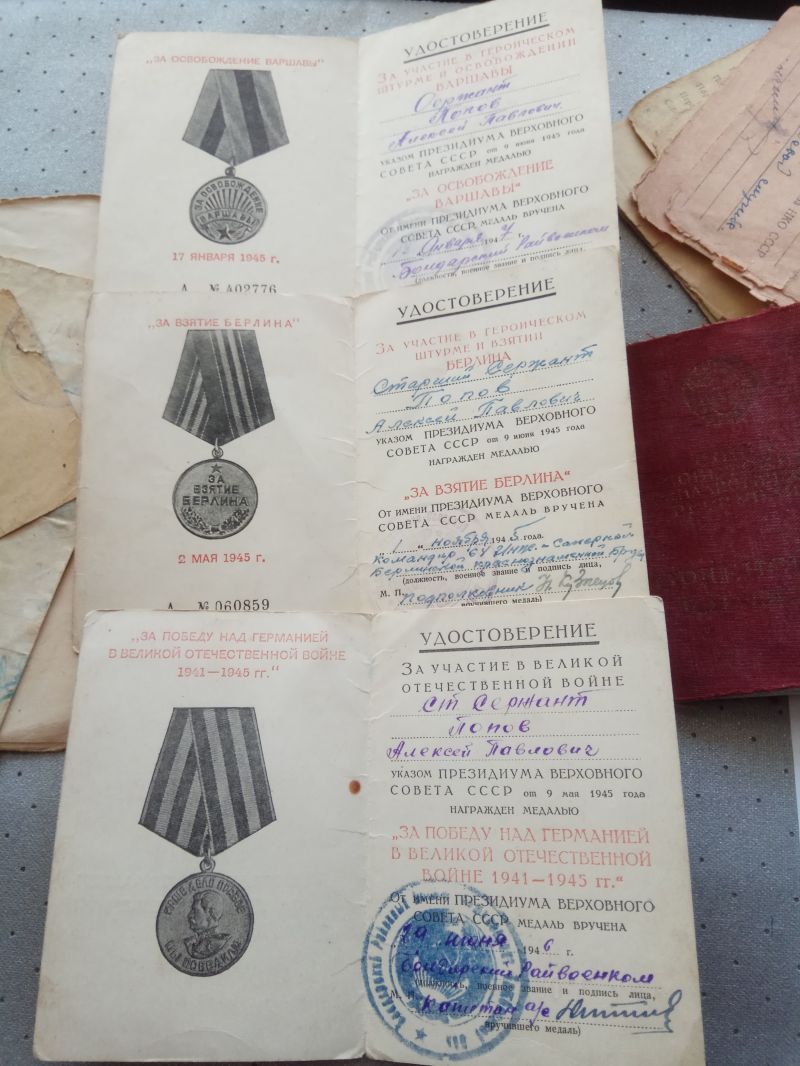 „ЗА ОСВОБОЖДЕНИЕ ВАРШАВЫ"
ЗА ОСВОБОЖДЕНИЕ
ВАРШАВЫ
17 ЯНВАРЯ 1945 г.
А № А02776
УДОСТОВЕРЕНИЕ
ЗА УЧАСТИЕ В ГЕРОИЧЕСКОМ
ШТУРМЕ И ОСВОБОЖДЕНИИ
ВАРШАВЫ
Сержант
Попов
Алексей Павлович
УКАЗОМ ПРЕЗИДИУМА ВЕРХОВНОГО
СОВЕТА СССР от 9 июня 1945 года
НАГРАЖДЕН МЕДАЛЬЮ
„ЗА ОСВОБОЖДЕНИЕ
ВАРШАВЫ"
От имени ПРЕЗИДИУМА ВЕРХОВНОГО
СОВЕТА СССР МЕДАЛЬ ВРУЧЕНА
Января 194
Райвоенком
(должность, военное звание и подпись лица,
„ЗА ВЗЯТИЕ БЕРЛИНА"
ЗА
ВЗЯТИЕ
БЕРЛИНА
2 МАЯ 1945 г.
А № 060859
УДОСТОВЕРЕНИЕ
ЗА УЧАСТИЕ В ГЕРОИЧЕСКОМ
ШТУРМЕ И ВЗЯТИИ
БЕРЛИНА
Старший Сержант
Попов
Алексей Павлович
УКАЗОМ ПРЕЗИДИУМА ВЕРХОВНОГО
СОВЕТА СССР от 9 июня 1945 года
НАГРАЖДЕН МЕДАЛЬЮ
„ЗА ВЗЯТИЕ БЕРЛИНА"
От имени ПРЕЗИДИУМА ВЕРХОВНОГО
СОВЕТА СССР МЕДАЛЬ ВРУЧЕНА
„1" ноября 1945 года.
Командир 64 Саперной
Берлинской краснознаменной
(должность, военное звание и подпись лица,
М. П. подполковник Кузнецов
вручившего медаль)
„ЗА ПОБЕДУ НАД ГЕРМАНИЕЙ
В ВЕЛИКОЙ ОТЕЧЕСТВЕННОЙ ВОЙНЕ
1941—1945 гг."
НАШЕ ДЕЛО ПРАВОЕ
МЫ ПОБЕДИЛИ
УДОСТОВЕРЕНИЕ
ЗА УЧАСТИЕ В ВЕЛИКОЙ
ОТЕЧЕСТВЕННОЙ ВОЙНЕ
Ст Сержант
Попов
Алексей Павлович
УКАЗОМ ПРЕЗИДИУМА ВЕРХОВНОГО
СОВЕТА СССР от 9 мая 1945 года
НАГРАЖДЕН МЕДАЛЬЮ
„ЗА ПОБЕДУ НАД ГЕРМАНИЕЙ
В ВЕЛИКОЙ ОТЕЧЕСТВЕННОЙ
ВОЙНЕ 1941—1945 гг."
От имени ПРЕЗИДИУМА ВЕРХОВНОГО
СОВЕТА СССР МЕДАЛЬ ВРУЧЕНА
29 июня 1946 г.
Бондарским Райвоенком
(должность, военное звание и подпись лица,
М. П. Капитан а/с
вручившего медаль)
НКО СССР